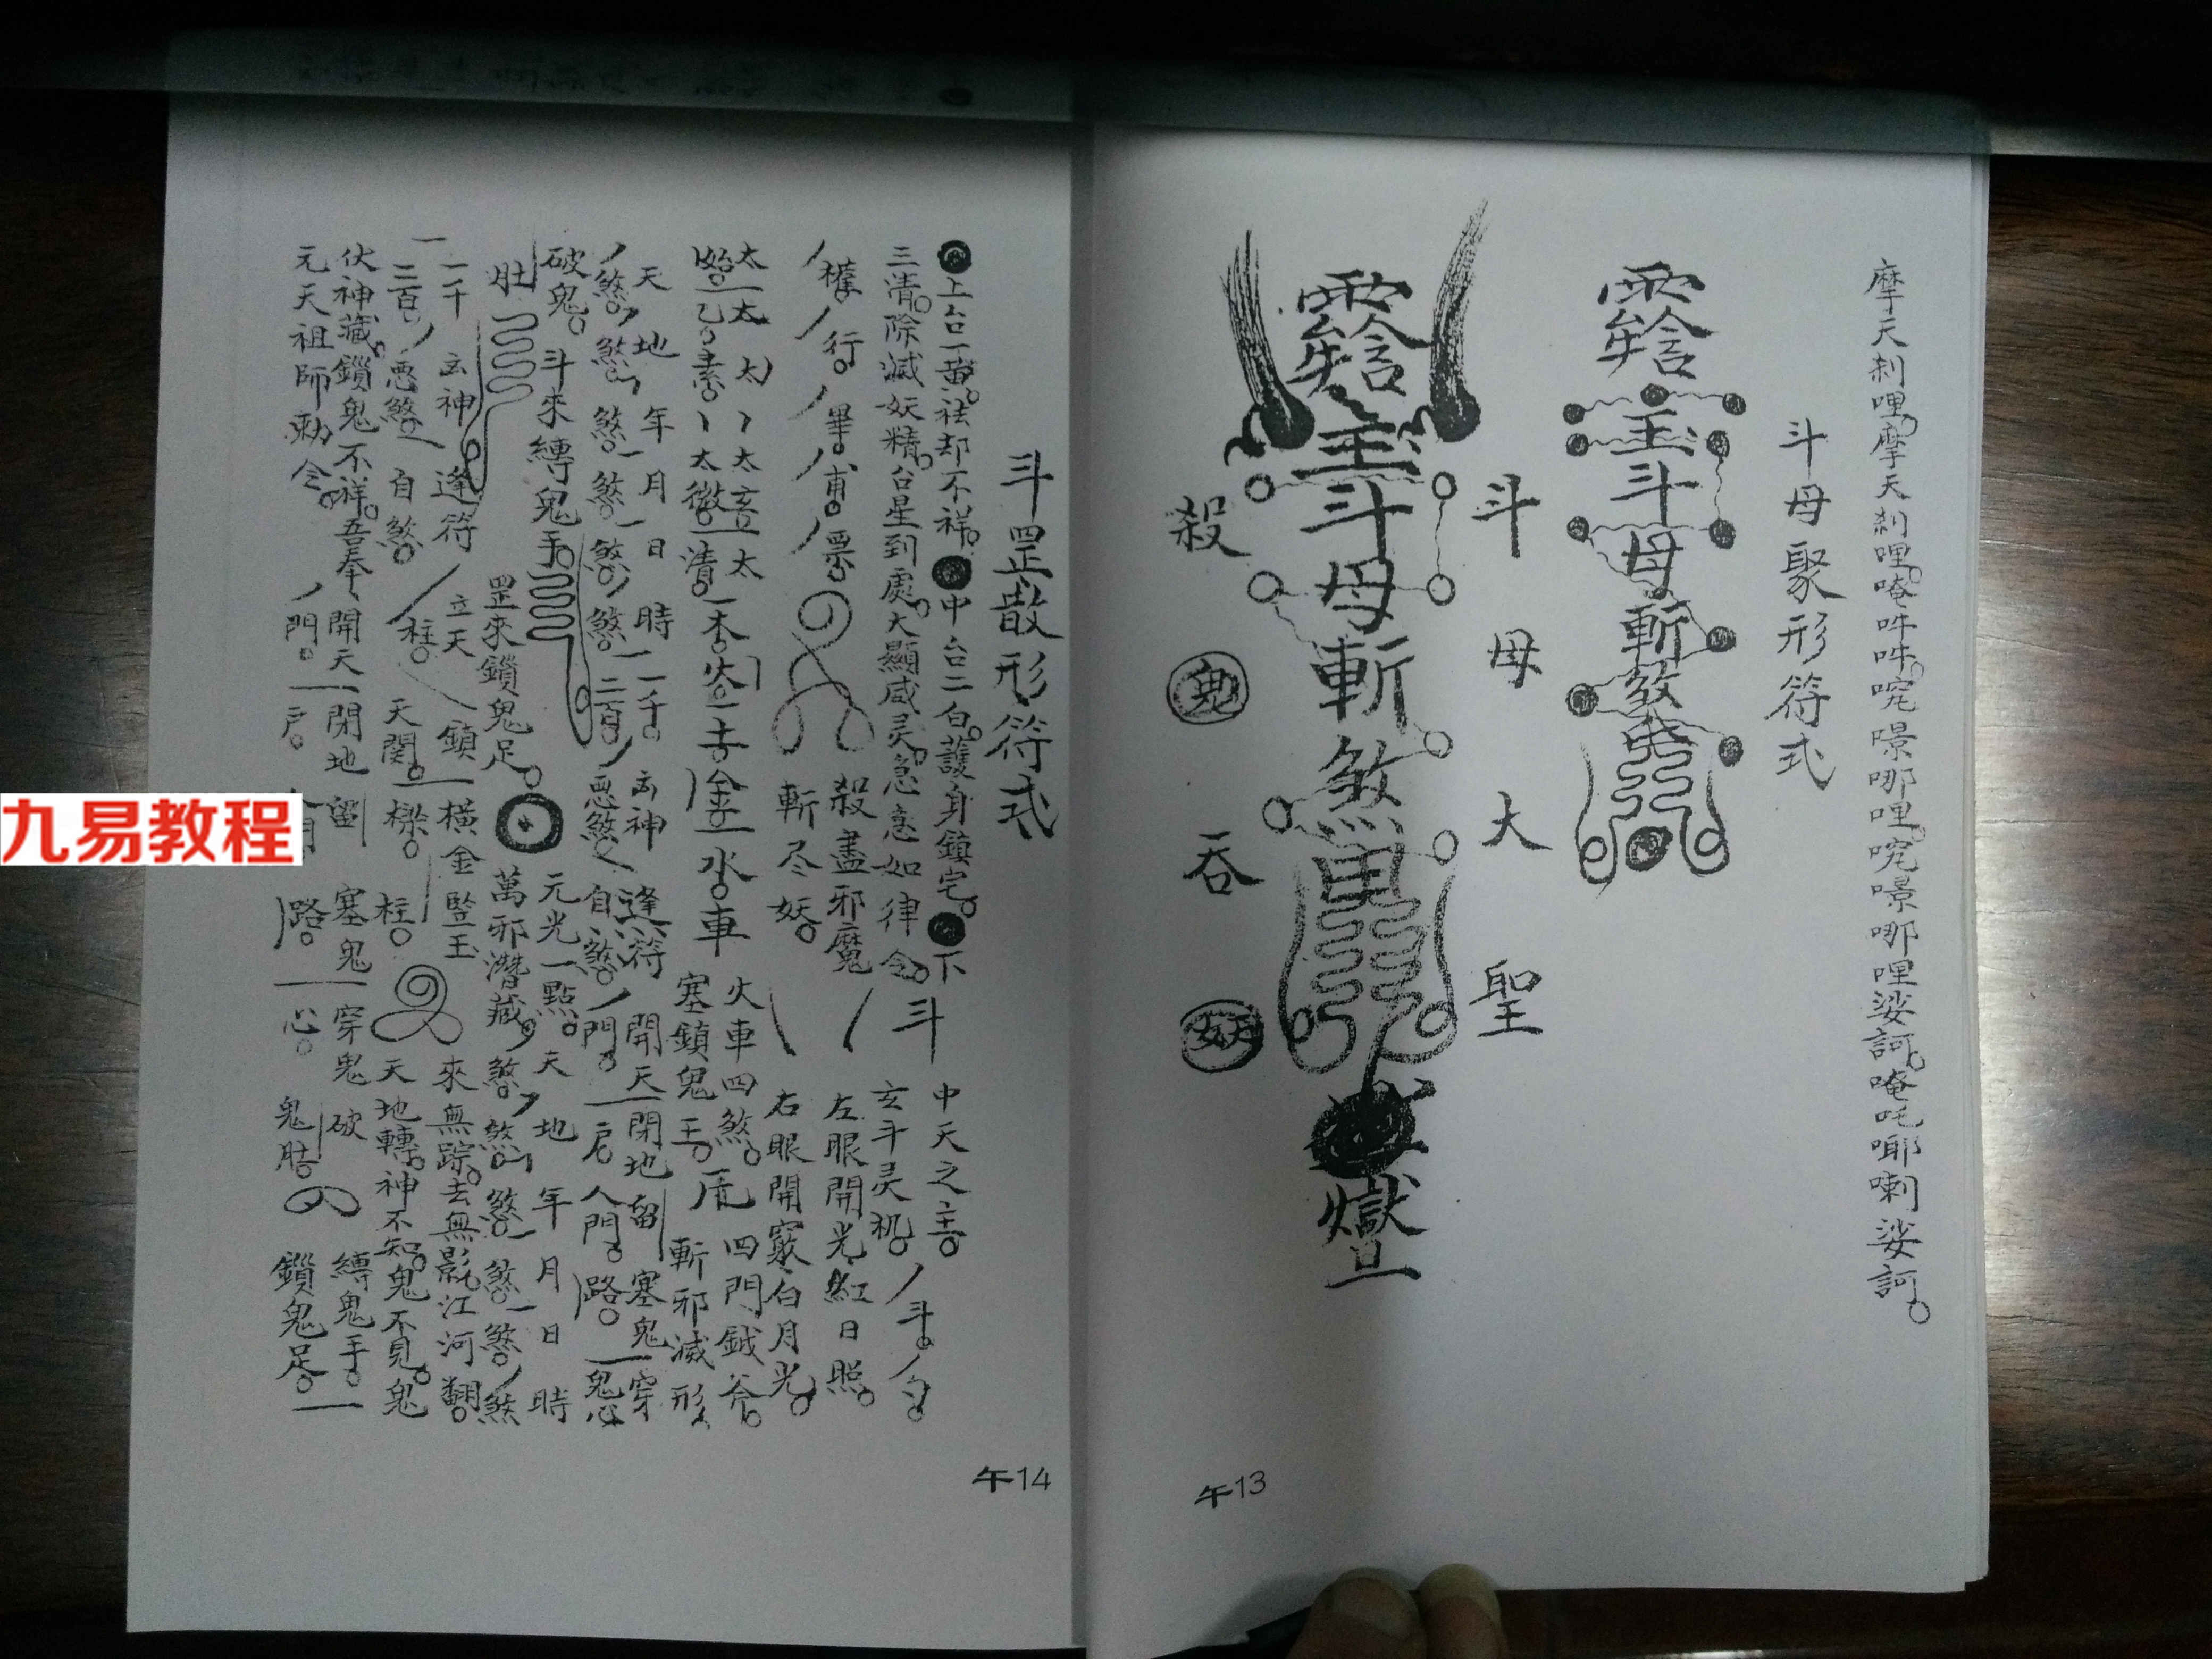 摩天刹哩摩天刹哩唵吽吽唍㬌哪哩唍㬌哪哩娑訶唵吒哪喇娑訶
斗母聚形符式
斗母斬煞
斗母大聖
斗母斬煞
殺鬼吞妖
午13
斗罡散形符式
上台一黃祛却不祥中台二白護身鎮宅下
三清除滅妖精台星到處大顯威灵急急如律令
斗
中天之主
玄斗灵机
斗勺
左眼開光紅日照
右眼開竅白月光
權行畢甫票
殺盡邪魔
斬尽妖
太太太太玄太
始乙素太微清
木火土金水車
火車四煞
四門鉞斧
塞鎖鬼王
斬邪滅形
天地年月日時一千
煞煞煞煞煞煞二百
玄神逢符
惡煞自煞
開天閉地留塞鬼穿
門戶人門路鬼心
破鬼肚
斗來縛鬼手
罡來鎖鬼足
元光一點
萬邪潛藏
天地年月日時
煞煞煞煞煞煞
一千玄神逢符
二百惡煞自煞
立天柱
鎖天関
橫金樑
豎玉柱
來無踪去無影江河翻
天地轉神不知鬼不見鬼
伏神藏鎖鬼不祥吾奉
元天祖師勅令
開天閉地留塞鬼穿鬼
門戶路心
破鬼肚
縛鬼手
鎖鬼足
午14
九易教程